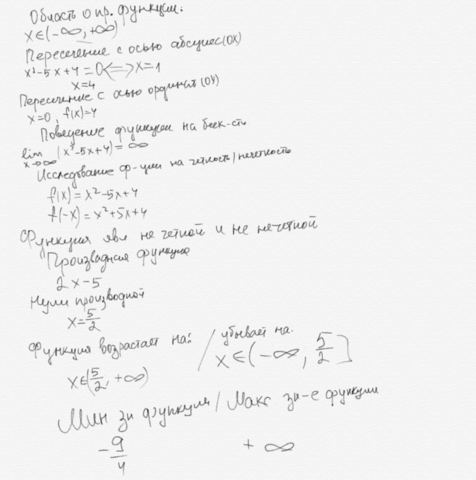 Область опр. функции:
x∈(-∞, +∞)
Пересечение с осью абсцисс(OX)
x²-5x+4=0<=>x=1
x=4
Пересечение с осью ординат (OY)
x=0, f(x)=4
Поведение функции на беск-сти
lim (x²-5x+4)=∞
x→∞
Исследование ф-ции на чётность/нечетность
f(x)=x²-5x+4
f(-x)=x²+5x+4
Функция явл не четной и не нечетной
Производная функции
2x-5
Нули производной
x=5/2
Функция возрастает на: / убывает на:
x∈(5/2, +∞) x∈(-∞, 5/2]
Мин зн функции / Макс. зн-е функции
-9/4 +∞